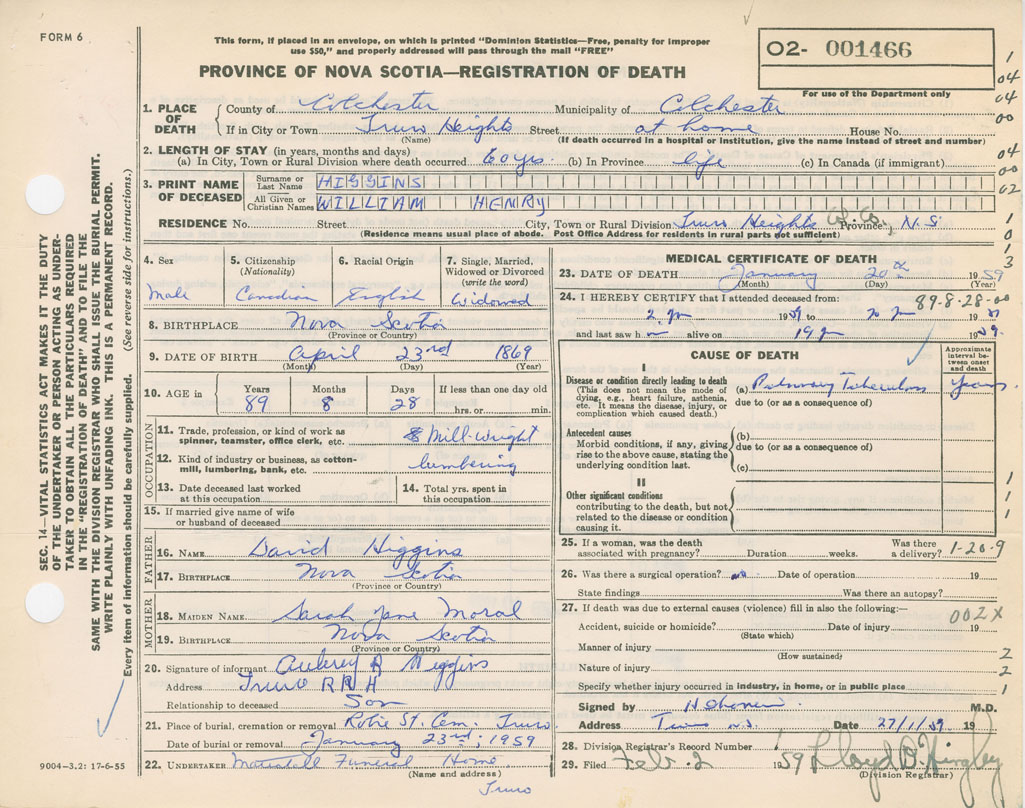 FORM 6
This form, if placed in an envelope, on which is printed "Dominion Statistics—Free, penalty for improper
use $50," and properly addressed will pass through the mail "FREE"
PROVINCE OF NOVA SCOTIA—REGISTRATION OF DEATH
O2- 001466
For use of the Department only
1
04
04
00
04
00
02
1
0
3
SEC. 14—VITAL STATISTICS ACT MAKES IT THE DUTY
OF THE UNDERTAKER OR PERSON ACTING AS UNDER-
TAKER TO OBTAIN ALL THE PARTICULARS REQUIRED
IN THE "REGISTRATION OF DEATH" AND TO FILE THE
SAME WITH THE DIVISION REGISTRAR WHO SHALL ISSUE THE BURIAL PERMIT.
WRITE PLAINLY WITH UNFADING INK. THIS IS A PERMANENT RECORD.
Every item of information should be carefully supplied. (See reverse side for instructions.)
1. PLACE OF DEATH
County of Colchester Municipality of Colchester
If in City or Town Truro Heights Street at home House No.
(Name) (If death occurred in a hospital or institution, give the name instead of street and number)
2. LENGTH OF STAY (in years, months and days)
(a) In City, Town or Rural Division where death occurred 60 yrs. (b) In Province life (c) In Canada (if immigrant)
3. PRINT NAME OF DECEASED
Surname or Last Name HIGGINS
All Given or Christian Names WILLIAM HENRY
RESIDENCE No. Street City, Town or Rural Division Truro Heights Col. Co. Province N.S
(Residence means usual place of abode. Post Office Address for residents in rural parts not sufficient)
4. Sex
Male
5. Citizenship
(Nationality)
Canadian
6. Racial Origin
English
7. Single, Married,
Widowed or Divorced
(write the word)
Widowed
8. BIRTHPLACE Nova Scotia
(Province or Country)
9. DATE OF BIRTH April 23rd 1869
(Month) (Day) (Year)
10. AGE in
Years Months Days If less than one day old
89 8 28 hrs. or min.
OCCUPATION
11. Trade, profession, or kind of work as
spinner, teamster, office clerk, etc. Mill-wright
12. Kind of industry or business, as cotton-
mill, lumbering, bank, etc. lumbering
13. Date deceased last worked
at this occupation
14. Total yrs. spent in
this occupation
15. If married give name of wife
or husband of deceased
FATHER
16. NAME David Higgins
17. BIRTHPLACE Nova Scotia
(Province or Country)
MOTHER
18. MAIDEN NAME Sarah Jane Moral
19. BIRTHPLACE Nova Scotia
(Province or Country)
20. Signature of informant Aubrey A Higgins
Address Truro RR4
Relationship to deceased Son
21. Place of burial, cremation or removal Robie St. Cem. Truro
Date of burial or removal January 23rd; 1959
22. UNDERTAKER Mattatall Funeral Home
(Name and address)
Truro
9004-3.2: 17-6-55
MEDICAL CERTIFICATE OF DEATH
23. DATE OF DEATH January 20th 1959
(Month) (Day) (Year)
24. I HEREBY CERTIFY that I attended deceased from: 89-8-28-00
and last saw h alive on 19 59.
CAUSE OF DEATH
Approximate interval be-
tween onset and death
I
Disease or condition directly leading to death
(This does not mean the mode of
dying, e.g., heart failure, asthenia,
etc. It means the disease, injury, or
complication which caused death.)
(a) Pulmonary Tuberculosis years.
due to (or as a consequence of)
Antecedent causes
Morbid conditions, if any, giving
rise to the above cause, stating the
underlying condition last.
(b)
due to (or as a consequence of)
(c)
II
Other significant conditions
contributing to the death, but not
related to the disease or condition
causing it.
1
1
1
25. If a woman, was the death
associated with pregnancy? Duration weeks. Was there
a delivery? 1-20-9
26. Was there a surgical operation? no Date of operation 19
State findings Was there an autopsy?
27. If death was due to external causes (violence) fill in also the following:—
002X
Accident, suicide or homicide? Date of injury 19
(State which)
Manner of injury 2
(How sustained)
Nature of injury 2
Specify whether injury occurred in industry, in home, or in public place 1
Signed by M.D.
Address Truro N.S. Date 27/1/59 19
28. Division Registrar's Record Number 1
29. Filed Feb. 2 1959 Lloyd B. Kingley
(Division Registrar)